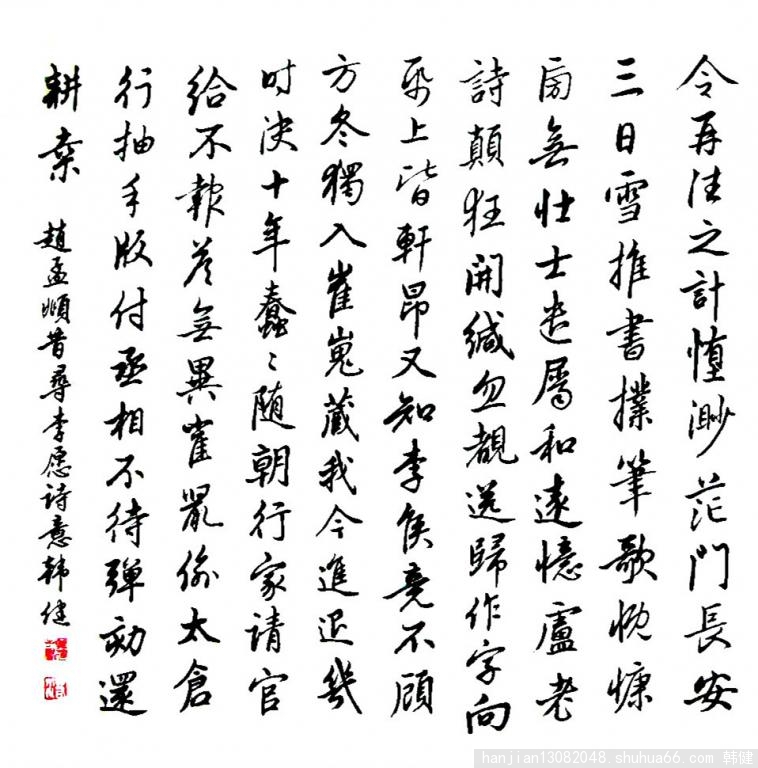 令再往之計渺茫門長安
三日雪推書撲筆歌慨慷
旁無壯士遣屬和遠憶盧老
詩顛狂開緘忽覩送歸作字向
帋上皆軒昂又知李侯竟不顧
方冬獨入崔嵬藏我今進退幾
时決十年蠢々随朝行家请官
給不報荅無異雀鼠偷太倉
行抽手版付丞相不待弹劾還
耕桒 趙孟頫昔尋李愿诗意韩健
hanjian13082048.shuhua66.com 韩健